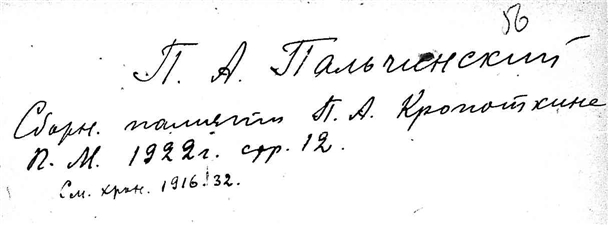 56
П. А. Пальчинский
Сборн. памяти П. А. Кропоткине
П. М. 1922 г. стр. 12.
См. хрон. 1916. 32.